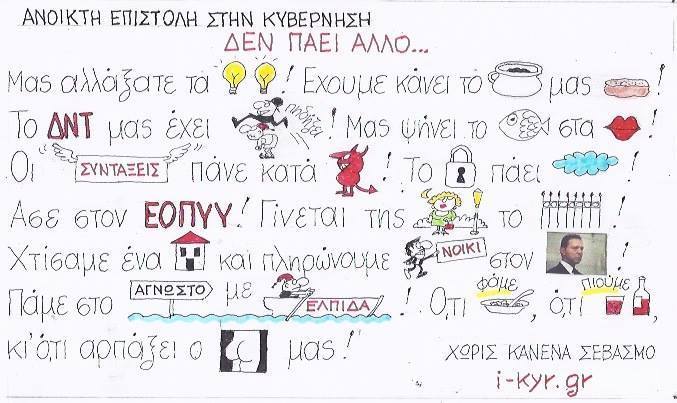 ΑΝΟΙΚΤΗ ΕΠΙΣΤΟΛΗ ΣΤΗΝ ΚΥΒΕΡΝΗΣΗ
ΔΕΝ ΠΑΕΙ ΑΛΛΟ...
Μας αλλάξατε τα ! Εχουμε κάνει το μας !
Το ΔΝΤ μας έχει πηδήξει! Μας ψήνει το στα !
Οι ΣΥΝΤΑΞΕΙΣ πάνε κατά ! Το πάει !
Ασε στον ΕΟΠΥΥ! Γίνεται της το !
Χτίσαμε ένα και πληρώνουμε ΝΟΙΚΙ στον !
Πάμε στο ΑΓΝΩΣΤΟ με ΕΛΠΙΔΑ! Ο,τι φάμε, ό,τι πιούμε,
κι' ό,τι αρπάξει ο μας!
ΧΩΡΙΣ ΚΑΝΕΝΑ ΣΕΒΑΣΜΟ
i-kyr.gr